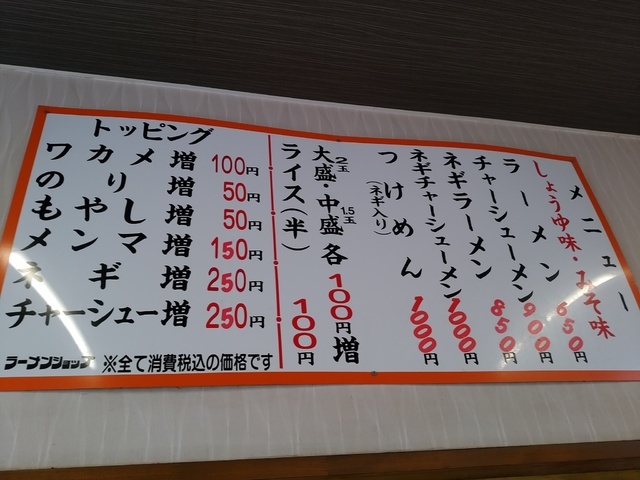 メニュー
しょうゆ味・みそ味
ラーメン 650円
チャーシューメン 900円
ネギラーメン 850円
ネギチャーシューメン 1000円
つけめん(ネギ入り) 1000円
大盛2玉・中盛1.5玉 各100円増
ライス(半) 100円
トッピング
ワカメ増 100円
のり増 50円
もやし増 50円
メンマ増 150円
ネギ増 250円
チャーシュー増 250円
ラーメンショップ ※全て消費税込の価格です